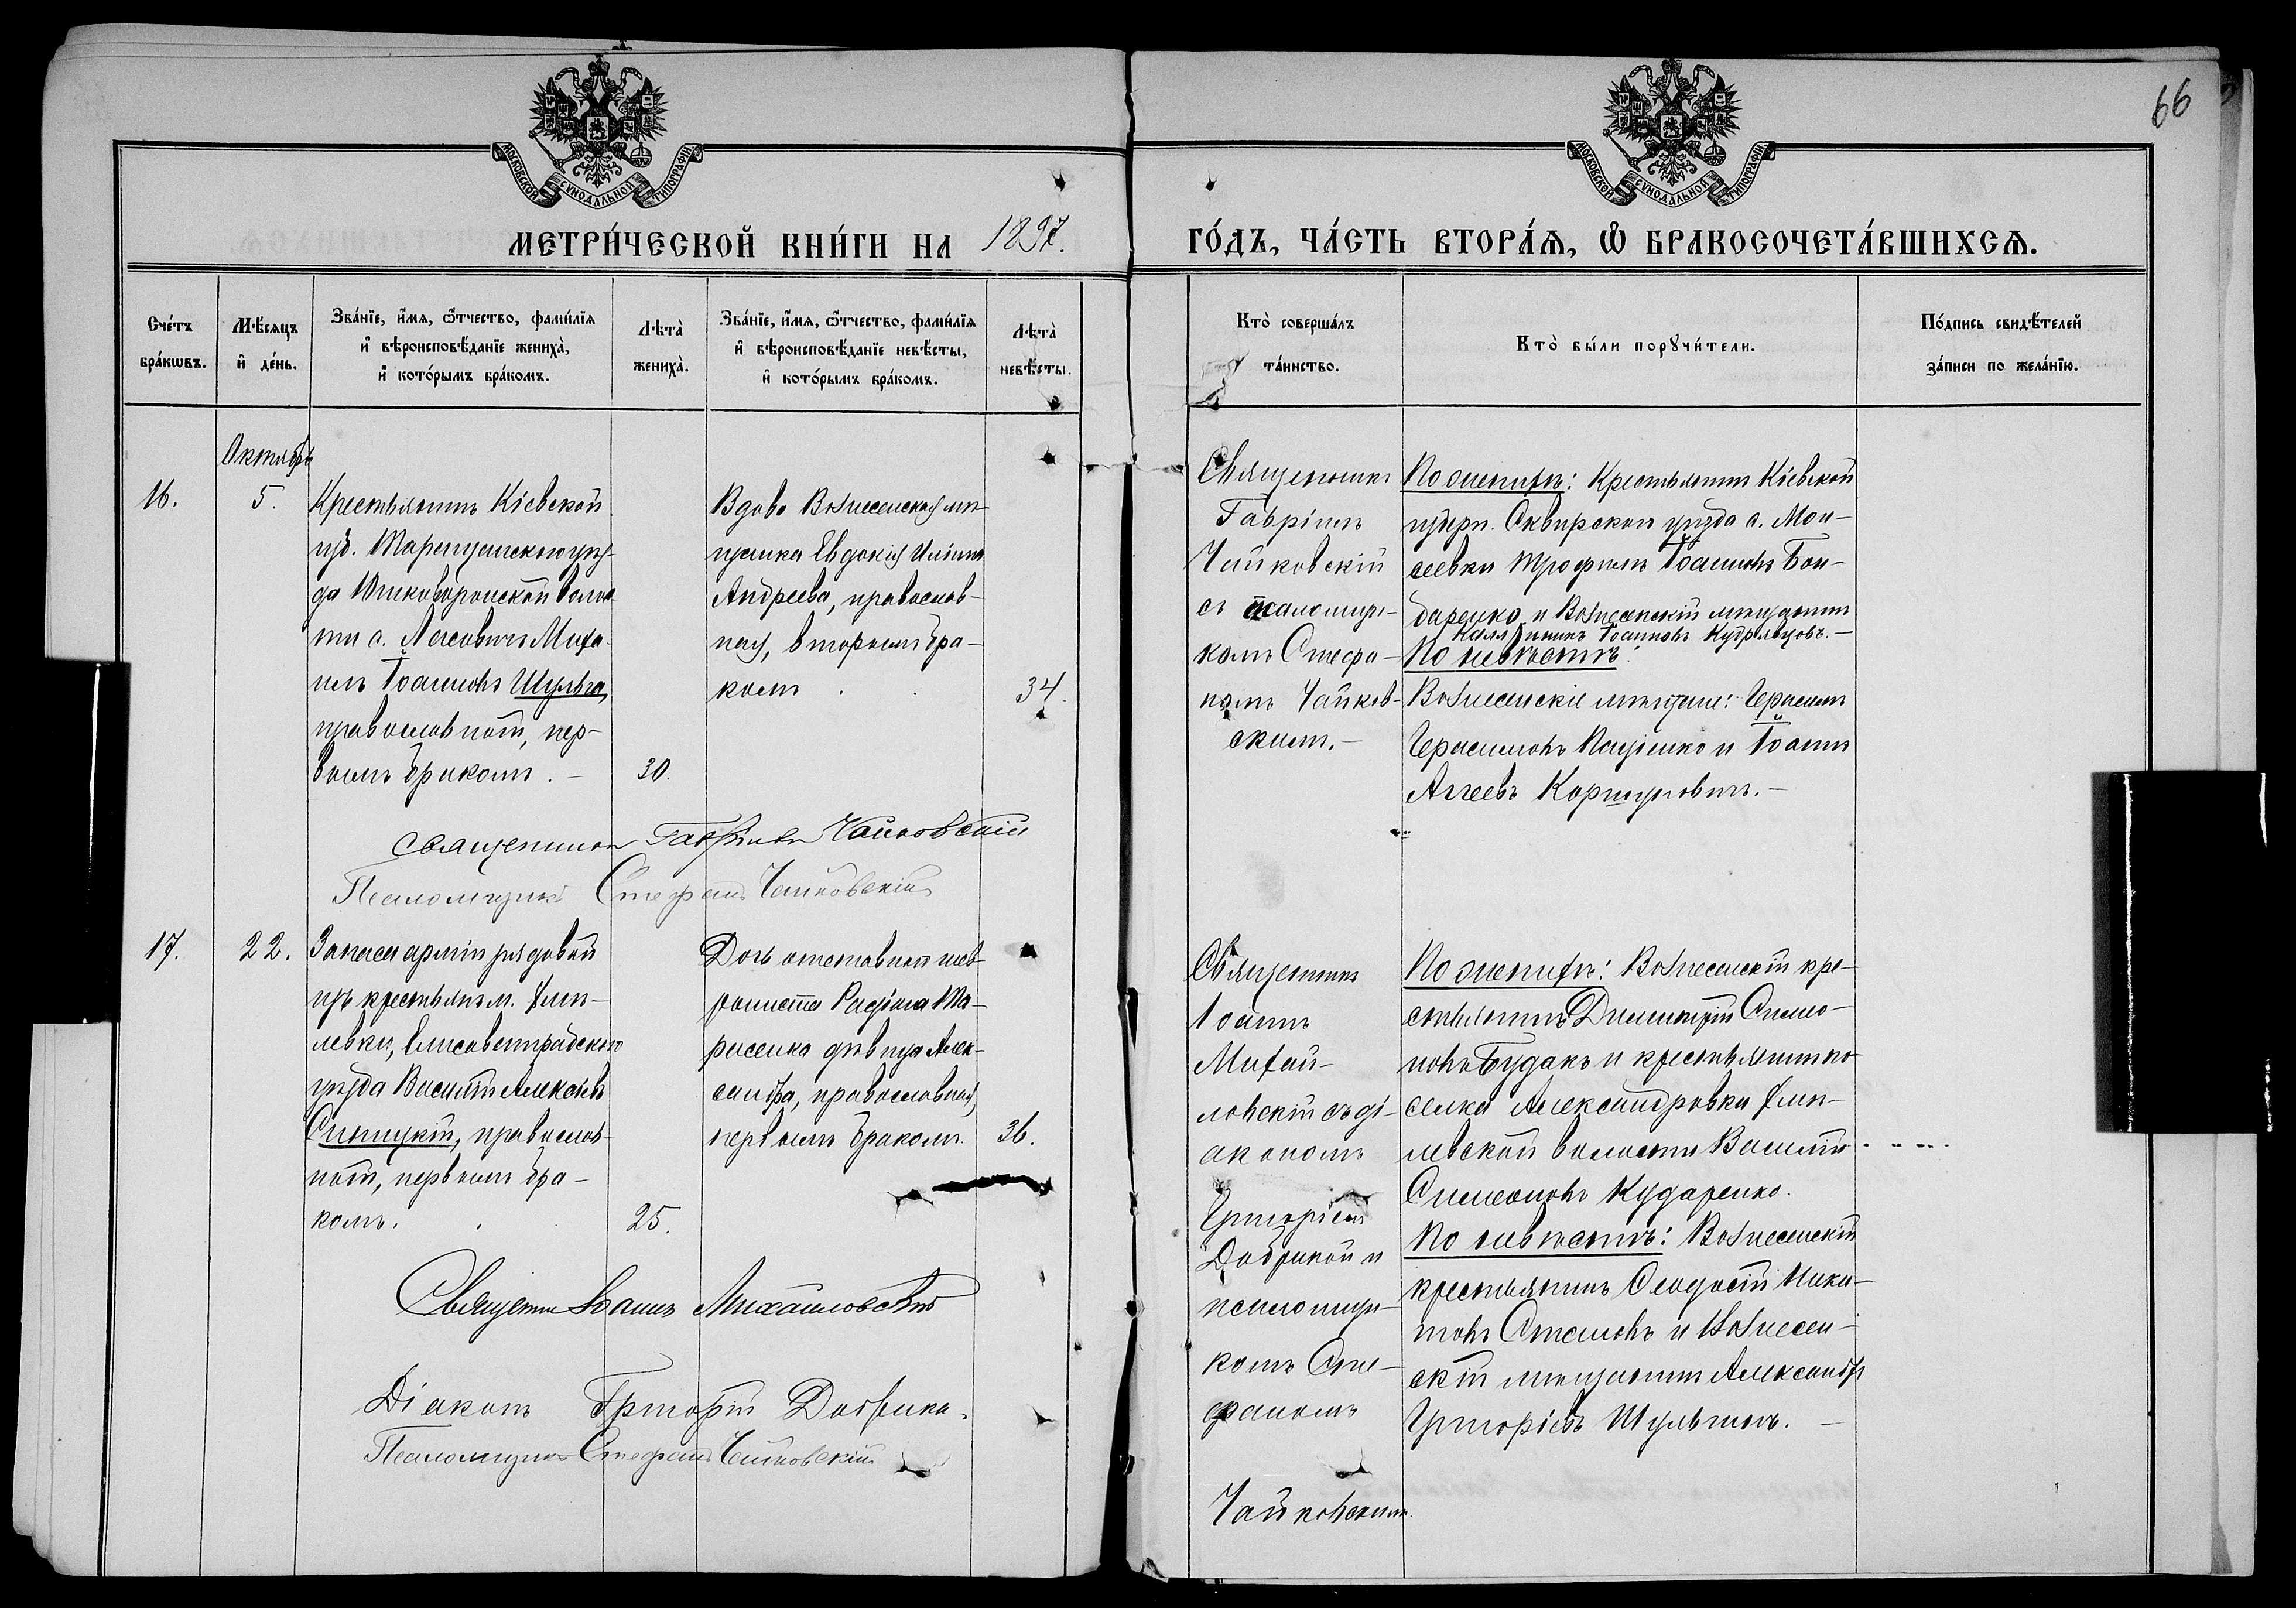 66
МОСКОВСКОЙ СѴНОДАЛЬНОЙ ТИПОГРАФІИ
МОСКОВСКОЙ СѴНОДАЛЬНОЙ ТИПОГРАФІИ
МЕТРИ́ЧЕСКОЙ КНИ́ГИ НА 1897.
ГО́ДЪ, ЧА́СТЬ ВТОРА́Ѧ, Ѡ҆ БРАКОСОЧЕТА́ВШИХСѦ.
Сче́тъ
бра́кѡвъ.
Мѣ́сяцъ
и҆ де́нь.
Зва́нїе, и҆́мѧ, ѻ҆́тчество, фами́лїѧ
и҆ вѣроисповѣ́данїе жениха̀,
и҆ кото́рымъ бра́комъ.
Лѣта̀
жениха̀.
Зва́нїе, и҆́мѧ, ѻ҆́тчество, фами́лїѧ
и҆ вѣроисповѣ́данїе невѣ́сты,
и҆ кото́рымъ бра́комъ.
Лѣта̀
невѣ́сты.
Кто̀ соверша́лъ
та́инство.
Кто̀ бы́ли порꙋчи́тели.
По́дпись свидѣ́телей
за́писи по жела́нїю.
Октябрь
16.
5.
Крестьянинъ Кіевской
губ. Таращанскаго уѣз-
да
ти с. Миха-
илъ Іоанновъ Шульга,
православной, пер-
вымъ бракомъ. –
30.
Вдова Вознесенская мѣ-
щанка Евдокія
Андреева, православ-
ная, вторымъ бра-
комъ
34.
Священникъ
Гавріилъ
Чайковскій
съ псаломщи-
комъ Стефа-
номъ Чайков-
скимъ. –
По женихѣ: Крестьянинъ Кіевской
губерн. Сквирскаго уѣзда с. Мои-
сеевки Трофимъ Іоанновъ Бон-
даренко и Вознесенскій мѣщанинъ
Каллиникъ Іоанновъ Кудрявцовъ. –
По невѣстѣ:
Вознесенскіе мѣщане: Герасимъ
Герасимовъ и Іоаннъ
Аггеевъ Коршуновичъ. –
Священникъ Гавріилъ Чайковскій
Псаломщикъ Стефанъ Чайковскій
17.
22.
Запаса арміи рядовой
изъ крестьянъ м.
левки, Елисаветградскаго
уѣзда Василій Алексѣевъ
Синицкій, православ-
ной, первымъ бра-
комъ.
25.
Дочь отставного
Ма-
расенка дѣвица Алек-
сандра, православная,
первымъ бракомъ.
36.
Священникъ
Іоаннъ
Михай-
ловскій съ ді-
акономъ
Григоріемъ
Добрикой и
псаломщи-
комъ Сте-
фаномъ
Чайковскимъ.
По женихѣ: Вознесенскій кре-
стьянинъ Димитрій Симо-
новъ Будакъ и крестьянинъ по-
селка Александровка
левской волости Василій
Симеоновъ Кударенко.
По невѣстѣ: Вознесенскій
крестьянинъ Ѳеодосій Ники-
товъ и Вознесен-
скій мѣщанинъ Александръ
Григоріевъ Шульгинъ. –
Священникъ Іоаннъ Михайловскій
Діаконъ Григорій Добрика.
Псаломщикъ Стефанъ Чайковскій